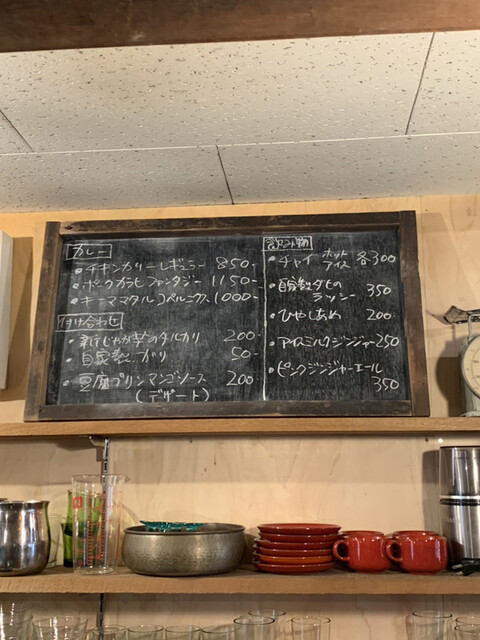 カレー
・チキンカリーレギュラー 850-
・ポークカラヒファンタジー 1150-
・キーママタルコペルニクス 1000-
付け合わせ
・新じゃが芋のタルカリ 200-
・自家製ガリ 50-
・豆腐プリンマンゴソース 200-
(デザート)
飲み物
・チャイ ホット アイス 各300
・自家製ダヒの
ラッシー 350
・ひやしあめ 200-
・アイスミルクジンジャー 250
・ピンクジンジャーエール
350